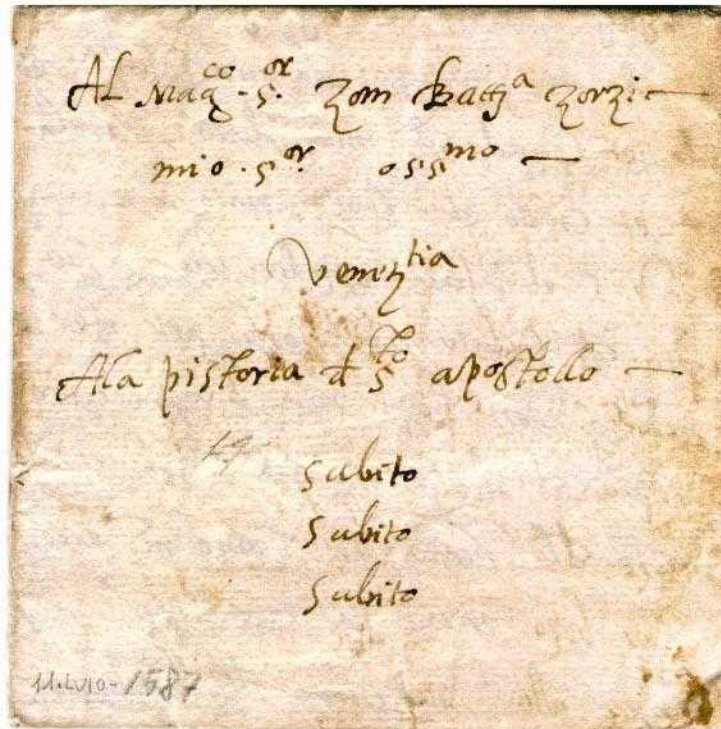 Al Mag.co S.or Zom Batt.a Zorzi
mio S.or oss.mo
Venetia
Ala pistoria d S.to apostollo
subito
subito
subito
11. LUIO - 1587